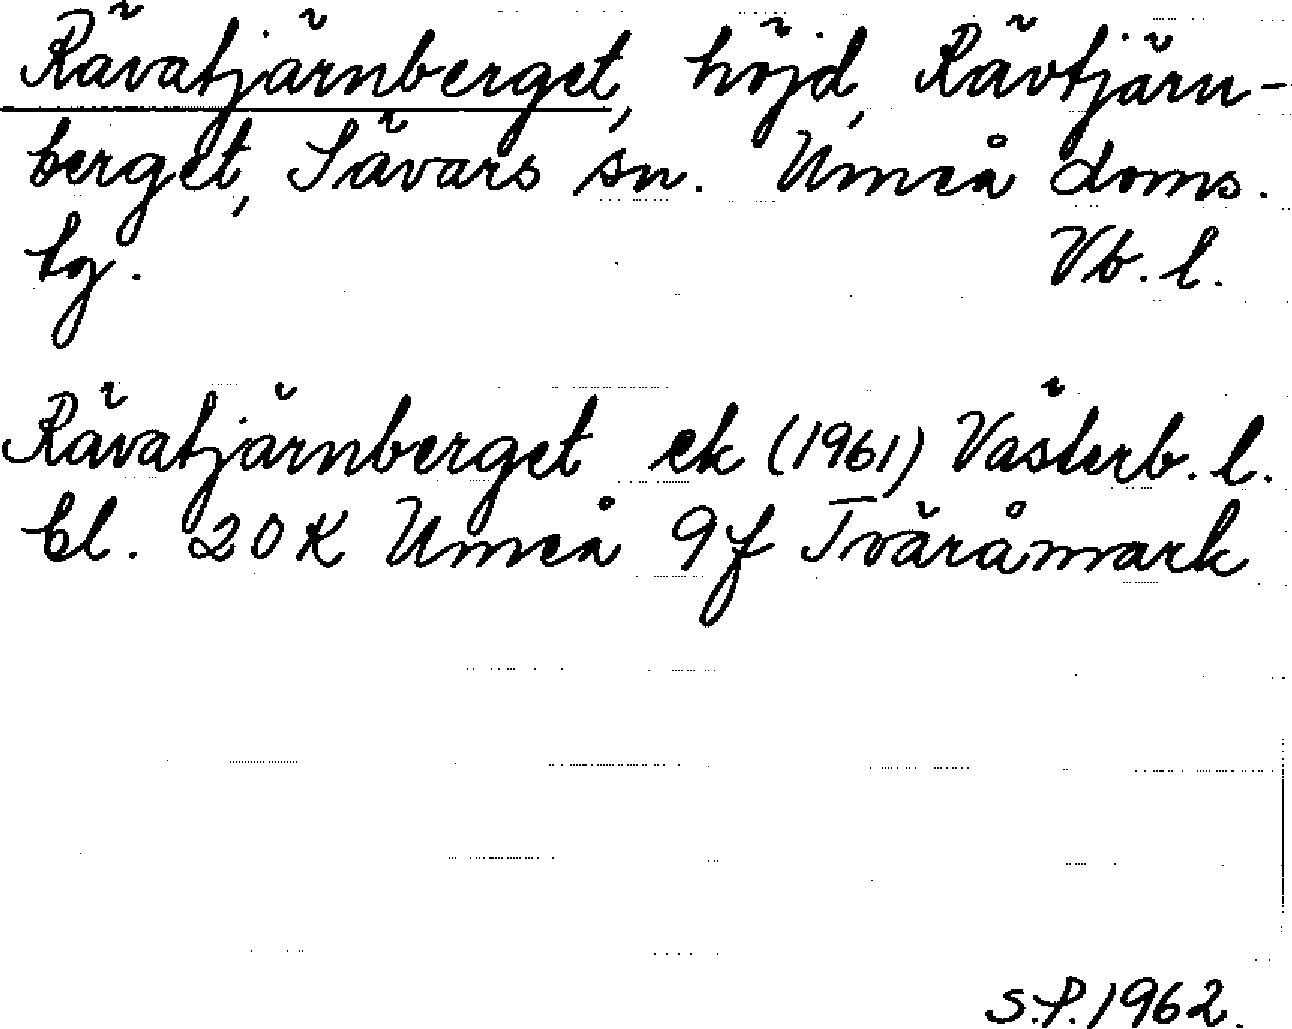 Rävatjärnberget, höjd, Rävtjärn-
berget, Sävars sn. Umeå doms.
bg. Vb. l.
Rävatjärnberget ek (1961) Västerb. l.
bl. 20 K Umeå 9 f Tväråmark
S.P. 1962.